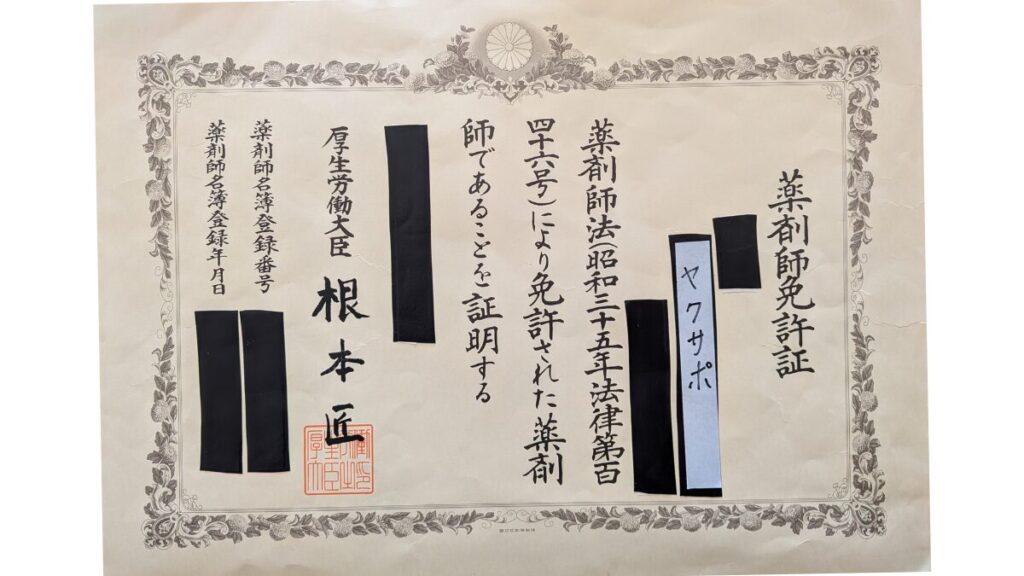 薬剤師免許証
ヤクサポ
薬剤師法(昭和三十五年法律第百
四十六号)により免許された薬剤
師であることを証明する
厚生労働大臣 根本匠
薬剤師名簿登録番号
薬剤師名簿登録年月日